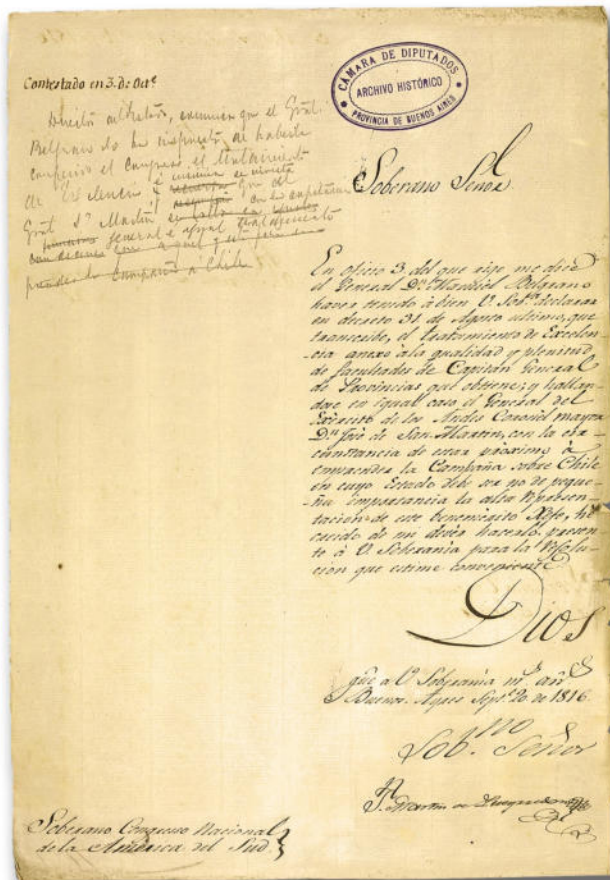 Contestado en 3. de Oct.e
CÁMARA DE DIPUTADOS
ARCHIVO HISTÓRICO
PROVINCIA DE BUENOS AIRES
que el Gral.
Belgrano
el Congreso el tratamiento
de
Gral Sn Martin
General
Campaña á Chile
Soberano Señor
En oficio 3 del que rige me dice
el General Dn Manuel Belgrano
haver tenido á bien V. Sob.a declarar
en decreto 31 de Agosto ultimo, que
transcribe, el tratamiento de Excelen-
-cia anexo ála qualidad y plenitud
de facultades de Capitan General
de Provincias que obtiene; y hallan-
dose en igual caso el General del
Exército de los Andes Coronel mayor
Dn José de San Martin, con la cir-
cunstancia de estar próximo á
emprender la Campaña sobre Chile
en cuyo Estado debe ser no de peque-
-ña importancia la alta Representacion
-tacion de este benemérito Xefe, he
creido de mi deber hacerlo presen-
te á V. Soberanía para la Resolu-
cion que estime conveniente
Dios
gũe a V. Soberanía m.s an.s
Buenos Ayres Sept.e 20 de 1816
Sob.no Señor
J. Martin de Pueyrredon
Soberano Congreso Nacional
de la América del Sud.